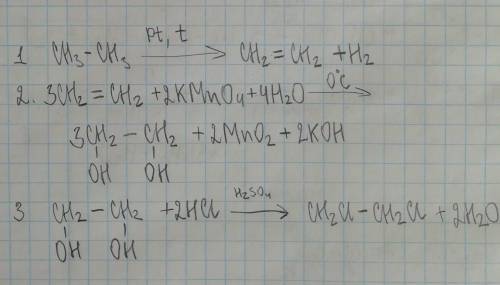 Pt, t
1 CH3-CH3 → CH2=CH2 +H2
2. 3CH2=CH2 +2KMnO4+4H2O 0°C →
3CH2-CH2 +2MnO2 +2KOH
OH OH
3 CH2-CH2 +2HCl H2SO4 → CH2Cl-CH2Cl +2H2O
OH OH